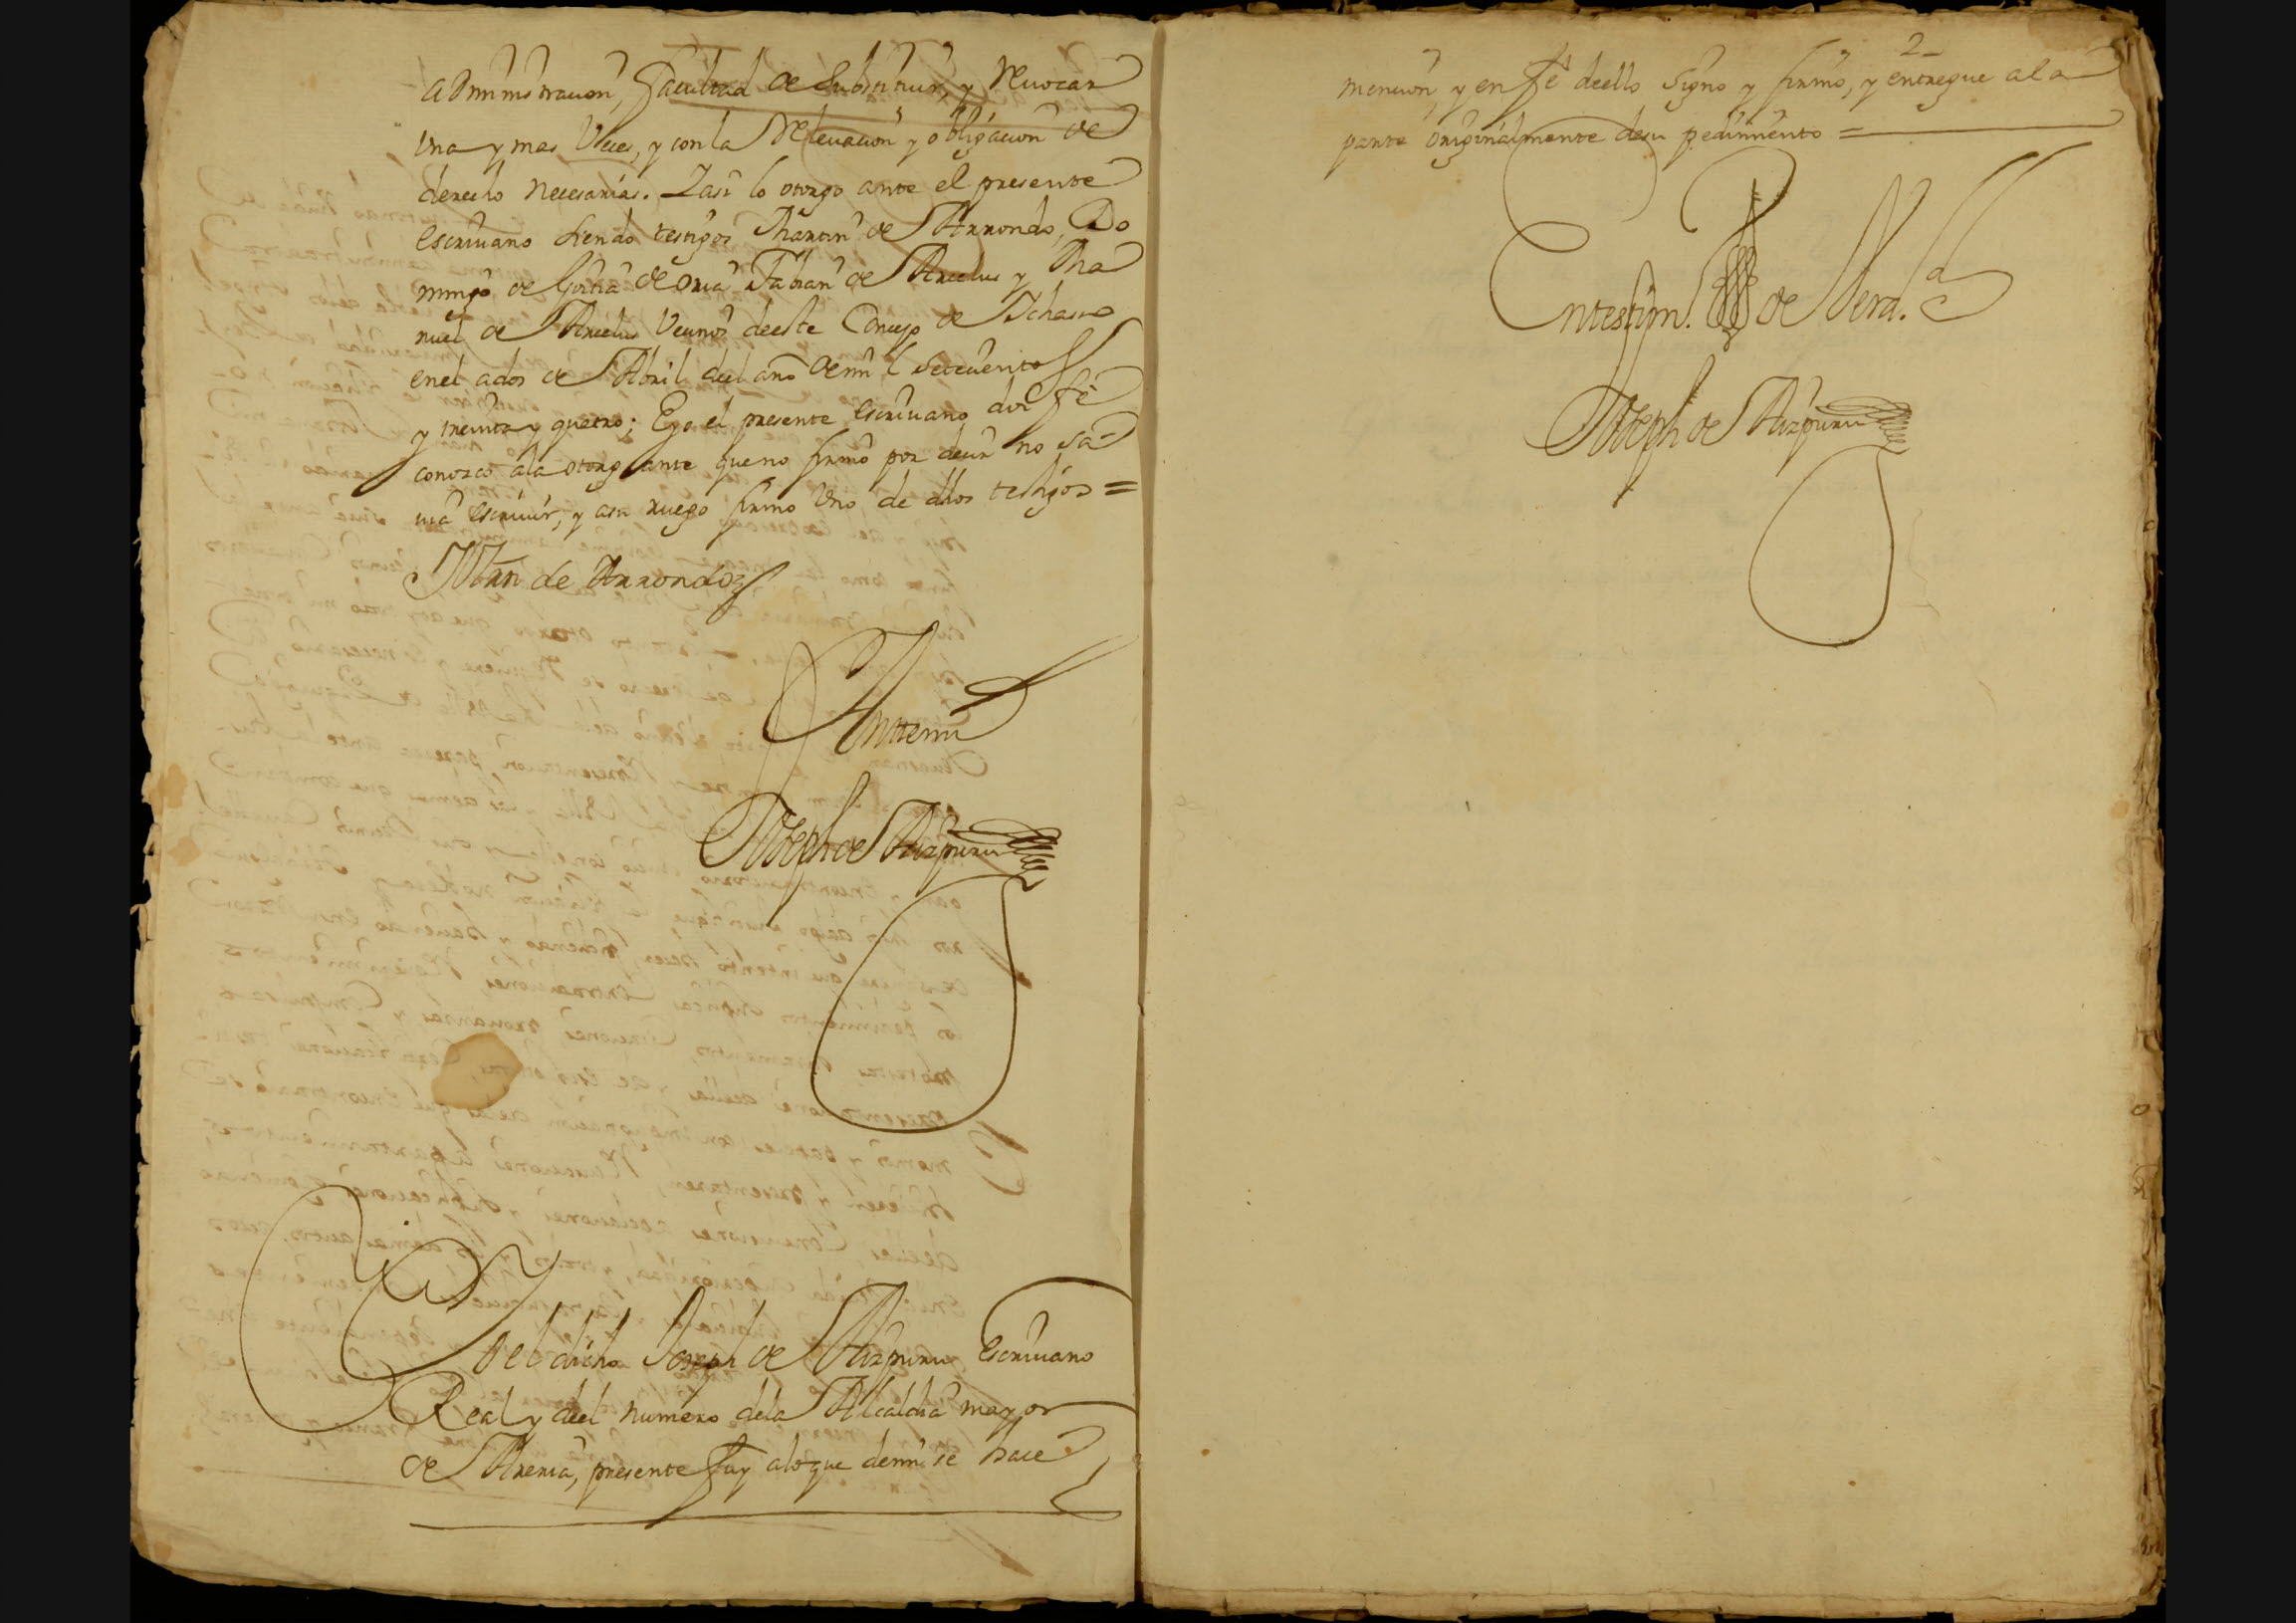 administracion, facultad de substituir, y Reuocar
Una y mas Ueces, y con la Releuacion y obligacion de
derecho necesarias. I asi lo otorgo ante el presente
escriuano siendo testigos Martin de Arrondo, Do
mingo de Goitia de oria Fabian de Arcelus y Ma
nuel de Arcelus Uecinos deeste Concejo de Ichaso
enel ados de Abril del año de mil setecientos
y treinta y quatro; E yo el presente escriuano doi fé
conozco ala otorgante que no firmó por decir no sa=
uia escriuir, y asu ruego firmo Uno de dhos testigos =
Mrn de Arrondo
Anttemi
Joseph de Aizpuru
Yo el dicho Joseph de Aizpuru escriuano
Real y del numero dela Alcaldia mayor
de Areria, presente fuy alo que demi se hace
2
mencion, y en fé deello signo y firmo, y entregue ala
parte originalmente desu pedimiento =
Entestim.º de Verd.ᵈ
Joseph de Aizpuru